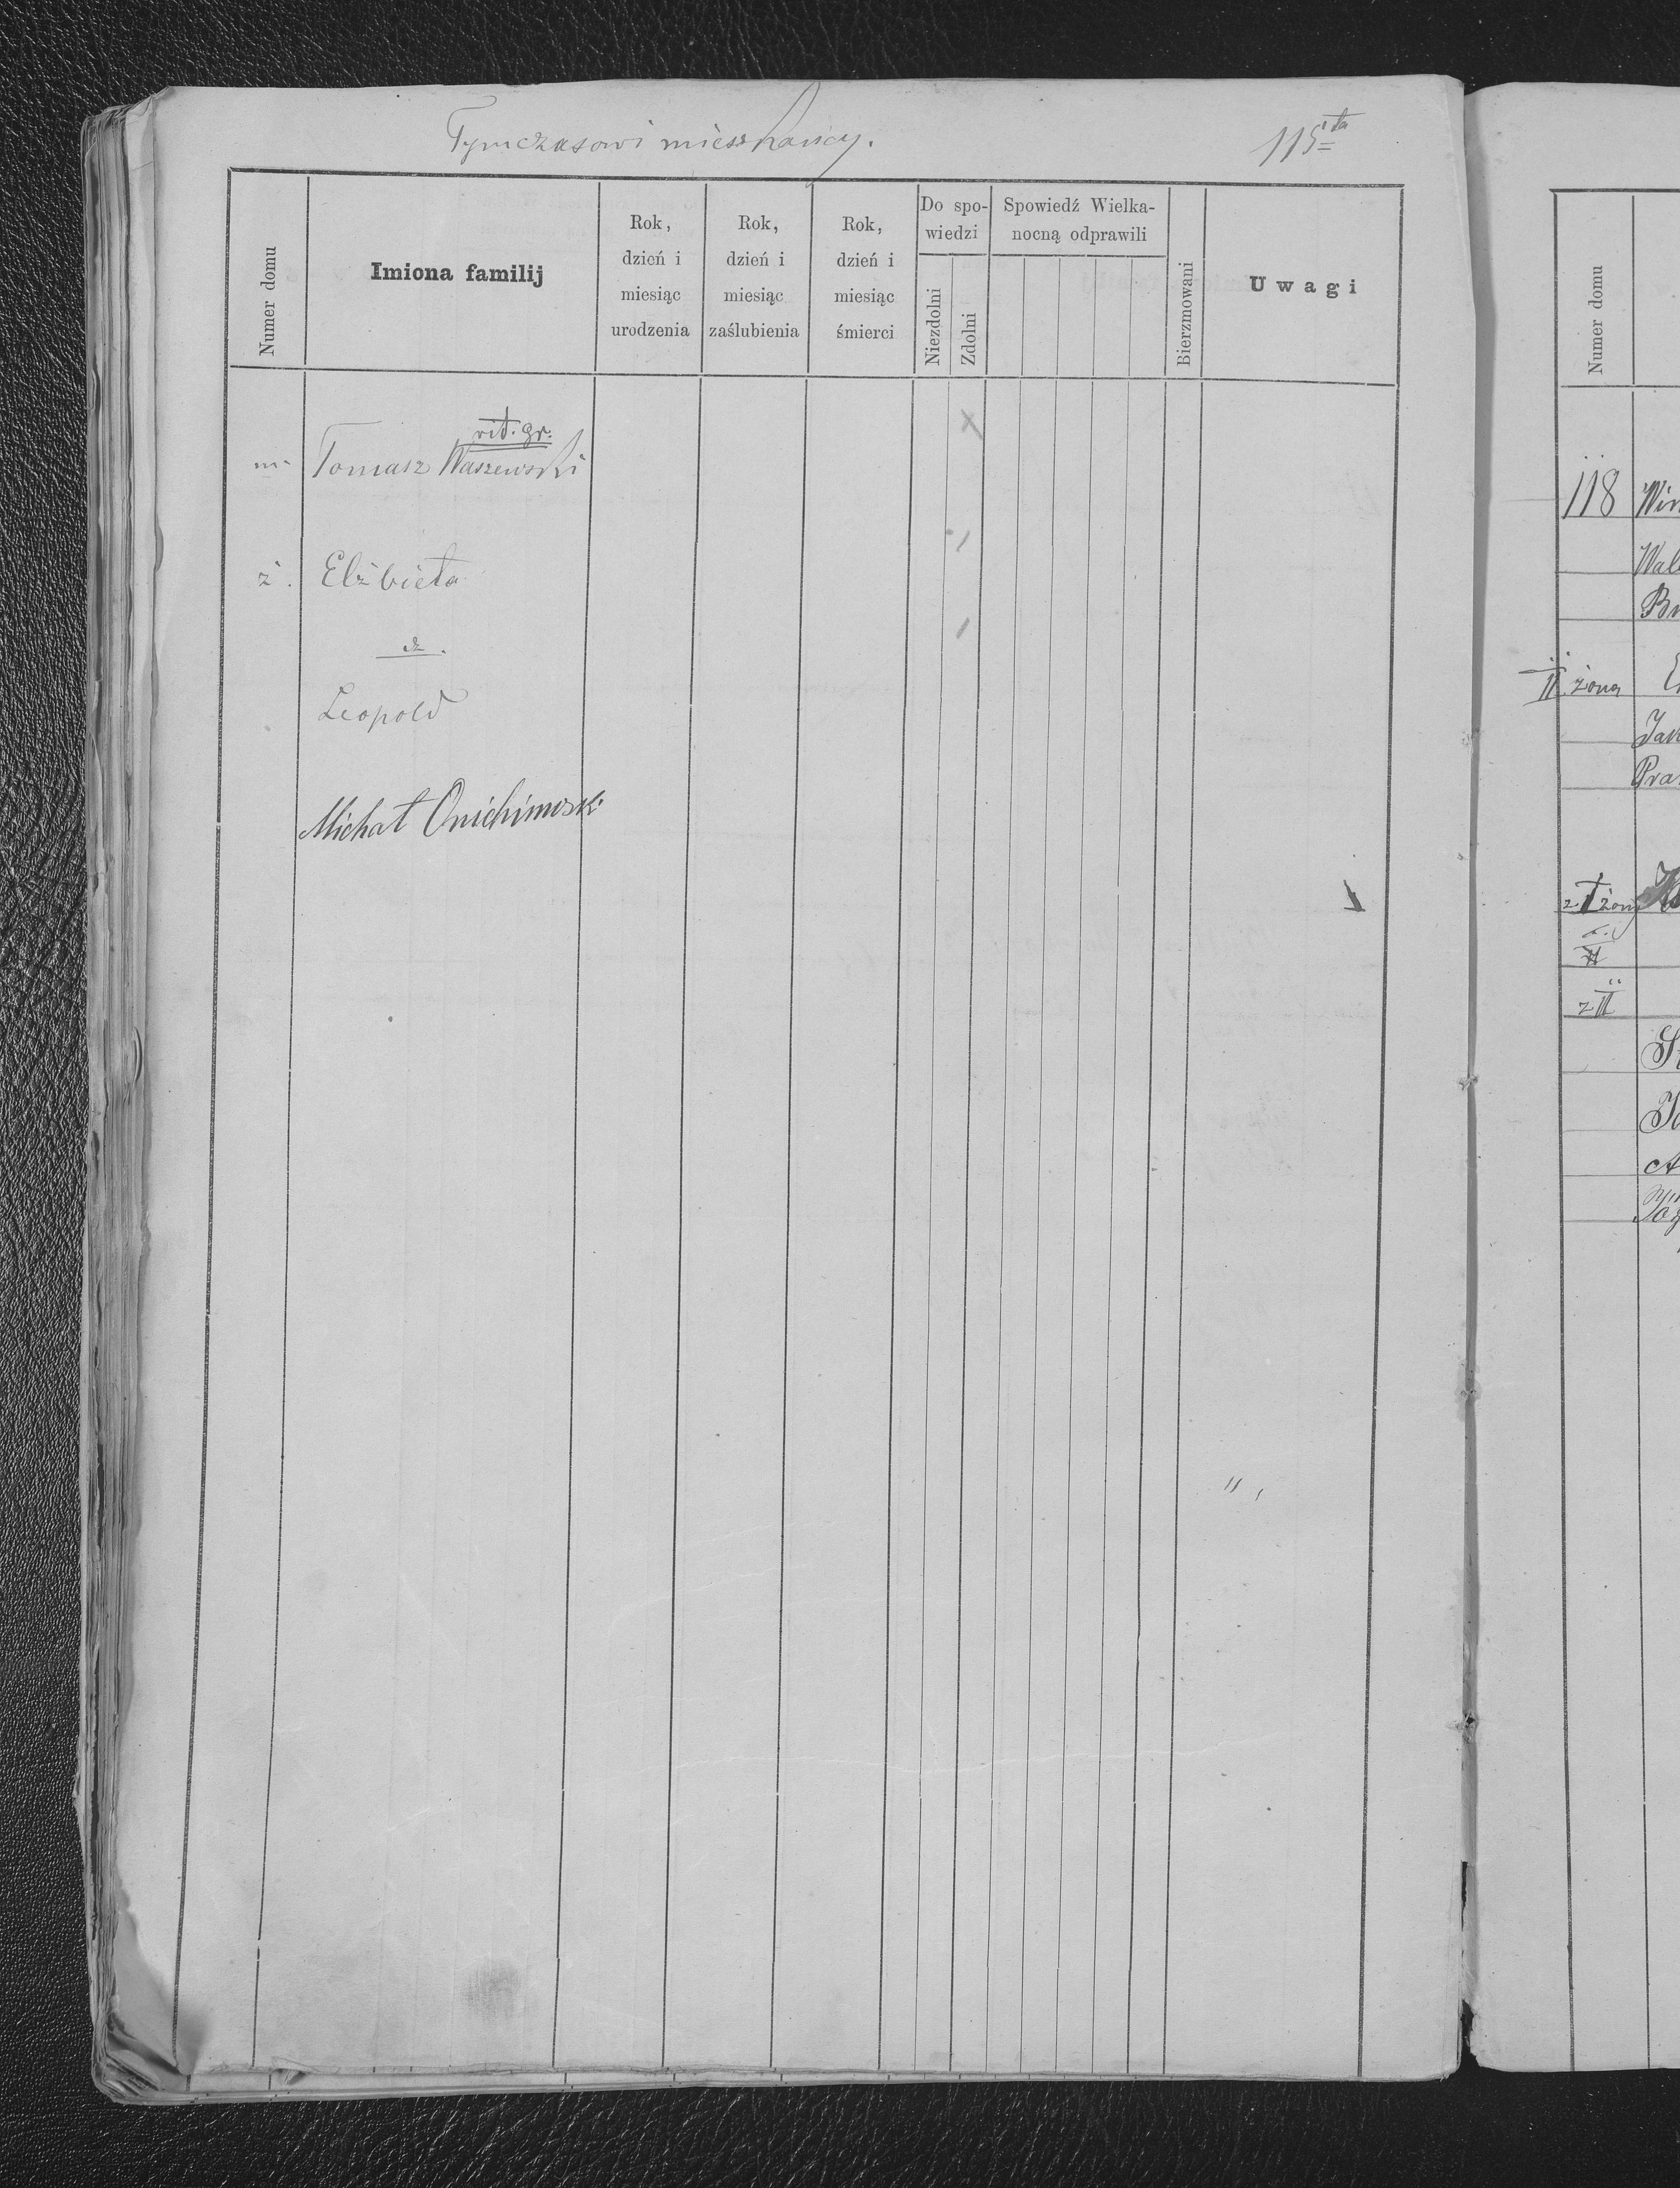 Tymczasowi mieszkańcy.
115ta
Numer domu
Imiona familij
Rok, dzień i miesiąc urodzenia
Rok, dzień i miesiąc zaślubienia
Rok, dzień i miesiąc śmierci
Do spo-
wiedzi
Niezdolni
Zdolni
Spowiedź Wielka-
nocną odprawili
Bierzmowani
Uwagi
rit. gr.
m. Tomasz Waszewski
ż. Elżbieta
dz.
Leopold
Michał Onichimoski
Numer domu
118
II żona
z I żony
z II